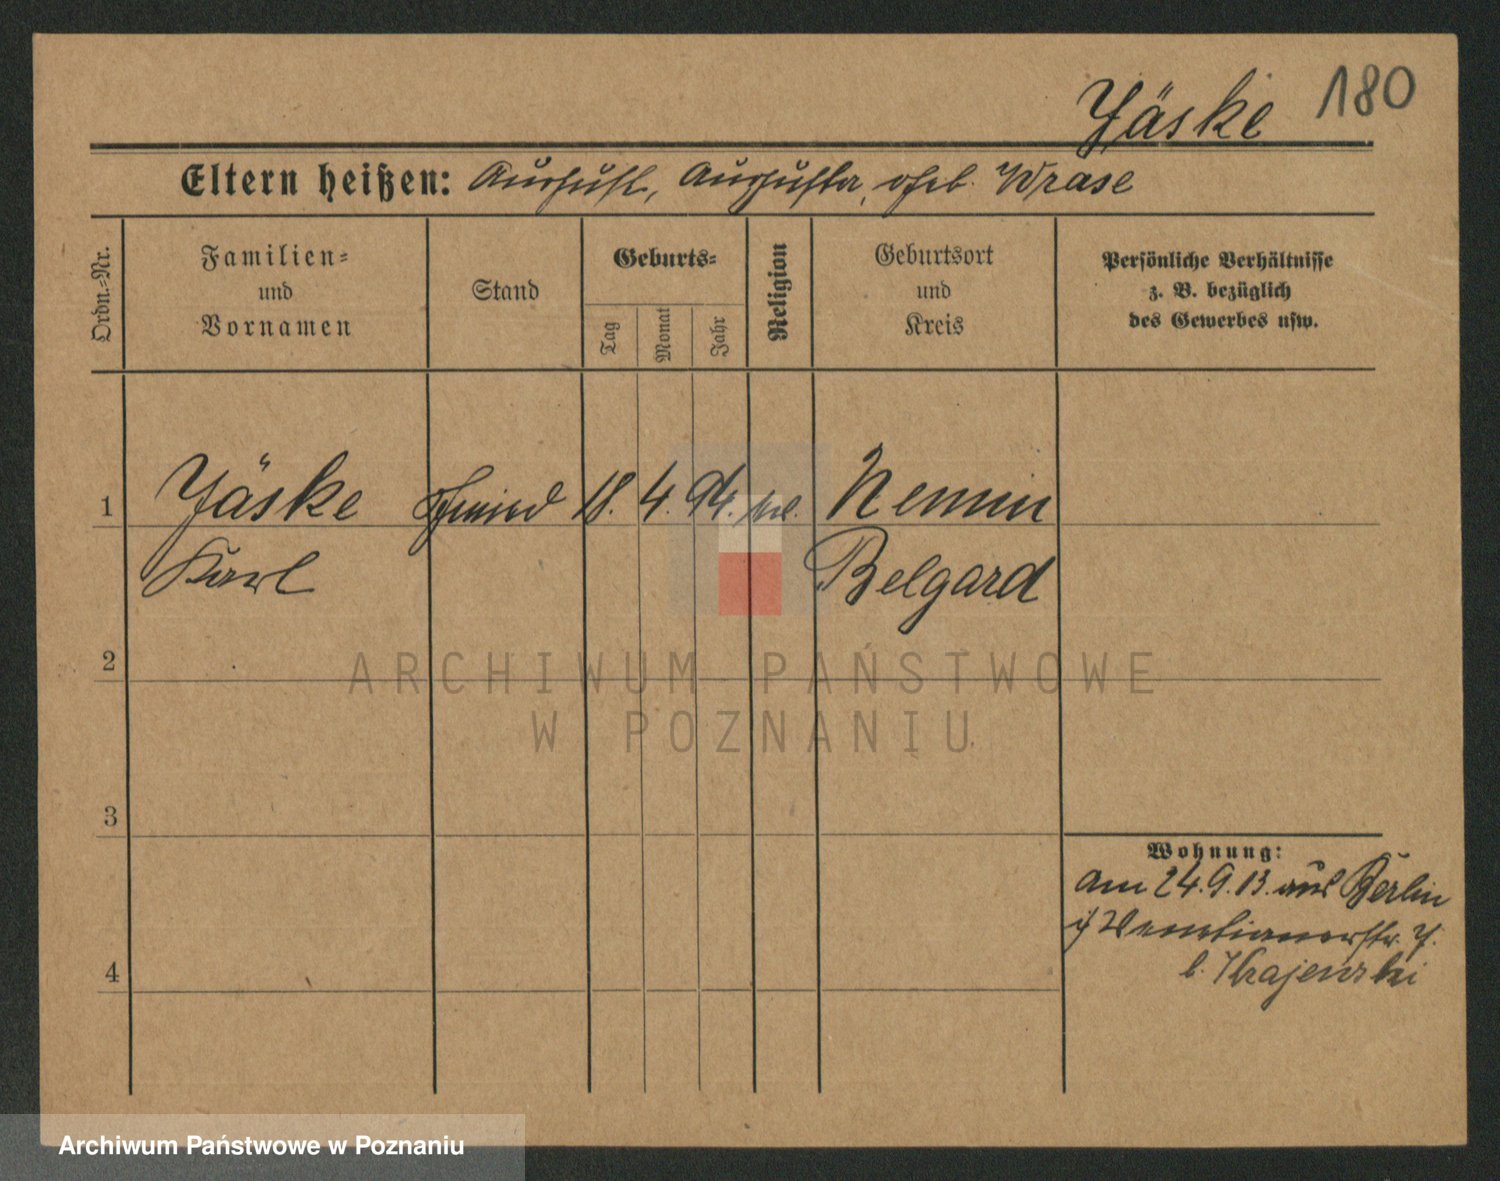 Jäske 180
Eltern heißen: August, Augusta, geb. Wrase
Ordn.-Nr.
Familien-
und
Vornamen
Stand
Geburts-
Tag
Monat
Jahr
Religion
Geburtsort
und
Kreis
Persönliche Verhältnisse
z. B. bezüglich
des Gewerbes usw.
1 Jäske Schmied 18. 4. 94. Nemmin
Karl Belgard
2
3
4
Wohnung:
am 24.9.13. aus Berlin
Venetianerstr. 7.
b. Krajewski
ARCHIWUM PAŃSTWOWE
W POZNANIU
Archiwum Państwowe w Poznaniu